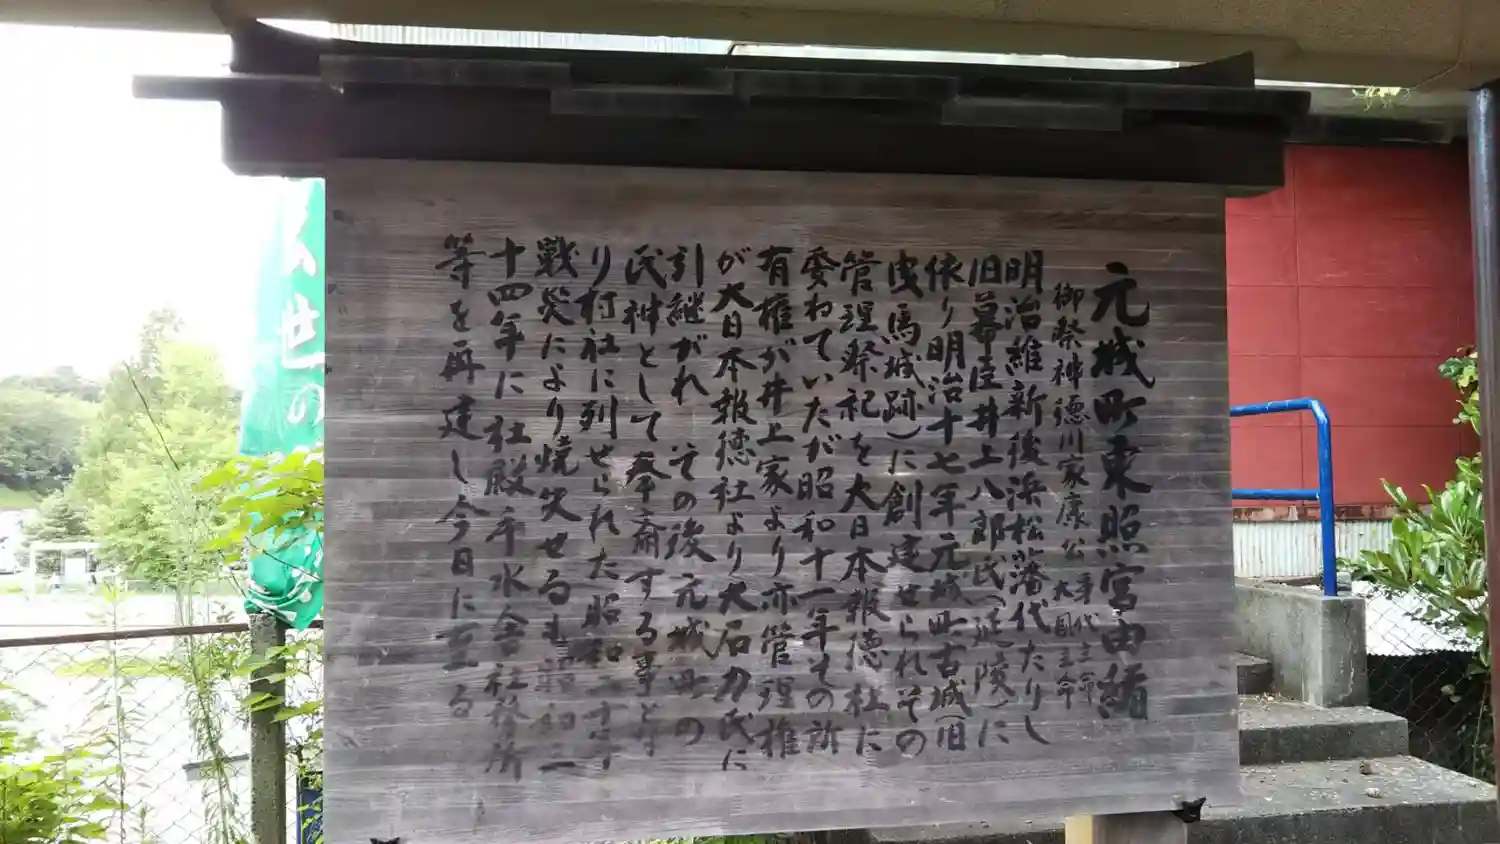 元城町東照宮由緒
御祭神徳川家康公 事代主命 大国主命
明治維新後浜松藩代たりし
旧幕臣井上八郎氏(延陵)に
依り明治十七年元城町古城(旧
曳馬城跡)に創建せられその
管理祭祀を大日本報徳社に
委ねていたが昭和十一年その所
有権が井上家より亦管理権
が大日本報徳社より大石力氏に
引継がれ その後元城町の
氏神として奉斎する事とな
り村社に列せられた昭和二十年
戦災により焼失せるも昭和三
十四年に社殿手水舎社務所
等を再建し今日に至る
世の